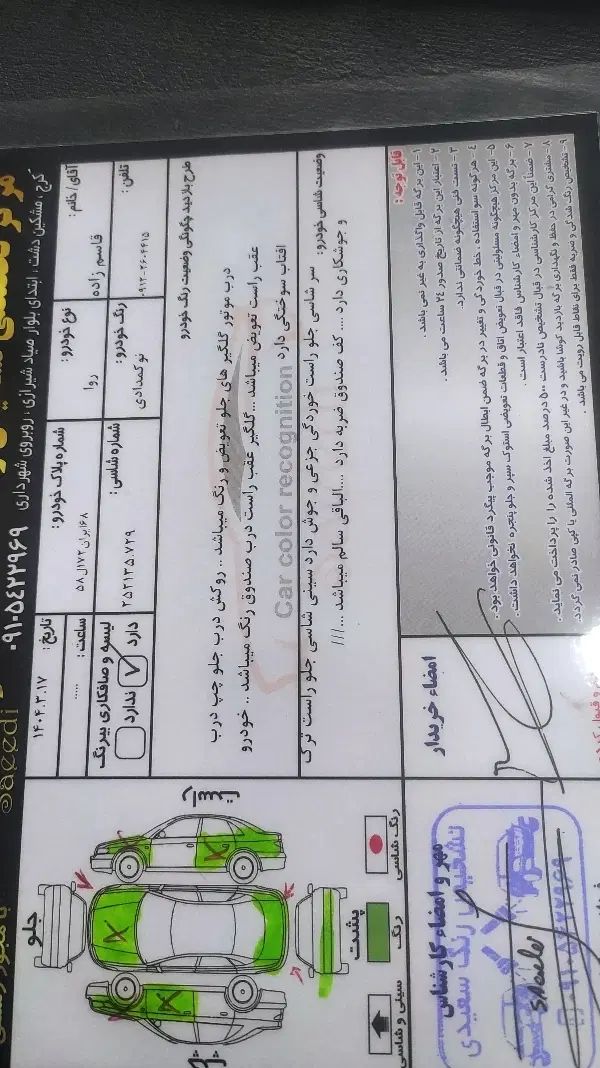 Saeedi
کرج ، مشکین دشت ، ابتدای بلوار صیاد شیرازی ، روبروی شهرداری ۰۹۱۰۵۴۲۲۹۶۹
آقای/خانم: قاسم زاده
نوع خودرو: روا
شماره پلاک خودرو: ۱۶۸ ایران ۷۲ ال ۵۸
تاریخ: ۱۴۰۴.۳.۱۷
ساعت: .....
تلفن:
رنگ خودرو: نوکمدادی
شماره شاسی: ۲۵۲۱۳۵۰۷۲۹
لیسه و صافکاری بیرنگ
دارد
ندارد
طرح بازدید چگونگی وضعیت رنگ خودرو
درب موتور گلگیر های جلو تعویض و رنگ میباشد .. روکش درب جلو چپ درب
عقب راست تعویض میباشد ... گلگیر عقب راست درب صندوق رنگ میباشد .. خودرو
افتاب سوختگی دارد
Car color recognition
وضعیت شاسی خودرو: سر شاسی جلو راست خوردگی جزعی و جوش دارد سینی شاسی جلو راست ترک
و جوشکاری دارد ... کف صندوق ضربه دارد ...الباقی سالم میباشد ...///
قابل توجه :
۱- این برگه قابل واگذاری به غیر نمی باشد .
۲- اعتبار این برگه از تاریخ صدور ۲۴ ساعت می باشد .
۳- تست فنی هیچگونه ضمانتی ندارد.
۴- هرگونه سو استفاده ، خط خوردگی و تغییر در برگه ضمن ابطال برگه موجب پیگرد قانونی خواهد بود.
۵- این مرکز هیچگونه مسئولیتی در قبال تعویض اتاق و قطعات تعویضی استوک سپر و جلو پنجره نخواهد داشت .
۶- برگه بدون مهر و امضاء کارشناس فاقد اعتبار است.
۷- ضمنا این مرکز کارشناسی در قبال تشخیص نادرست ۵۰ درصد مبلغ اخذ شده را پرداخت می نماید.
۸- مشتری گرامی در حفظ و نگهداری برگه بازدید کوشا باشید و در غیر این صورت برگه المثنی یا کپی صادر نمی گردد.
۹- تشخیص رنگ شدگی و ضربه فقط برای نقاط قابل رویت می باشد.
امضاء خریدار
جلو
پشت
رنگ شاسی
رنگ
سینی و شاسی
مهر و امضاء کارشناس
تشخیص رنگ سعیدی
۰۹۱۰۵۴۲۲۹۶۹